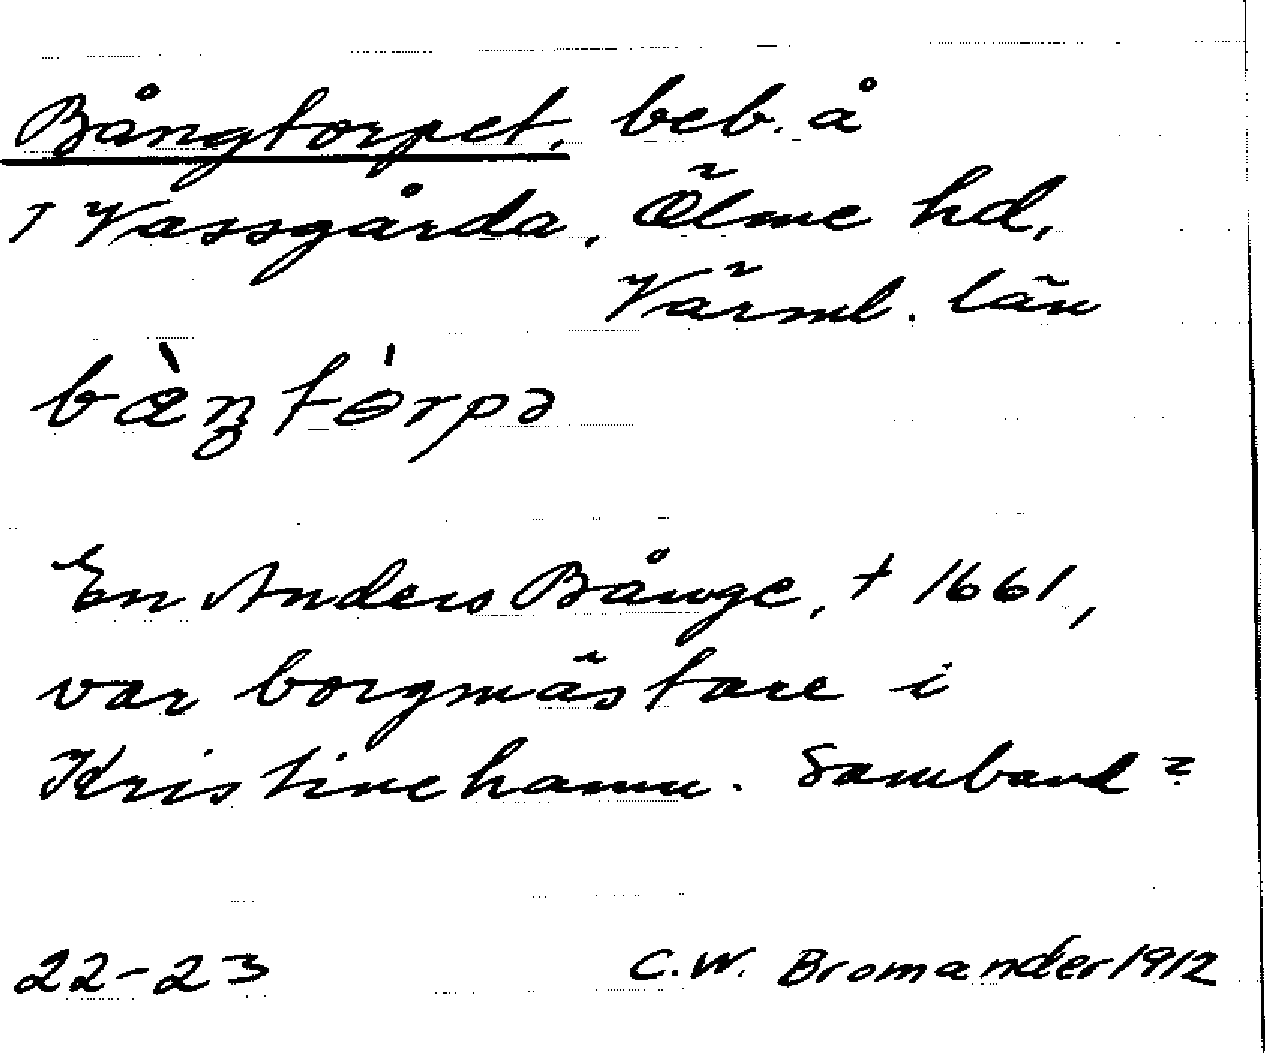 Bångtorpet. beb. å
↑ Vassgårda, Ölme hd,
Värml. län
bæ̀ŋtórpə
En Anders Bånge, † 1661,
var borgmästare i
Kristinehamn. Samband?
22-23 C.W. Bromander 1912